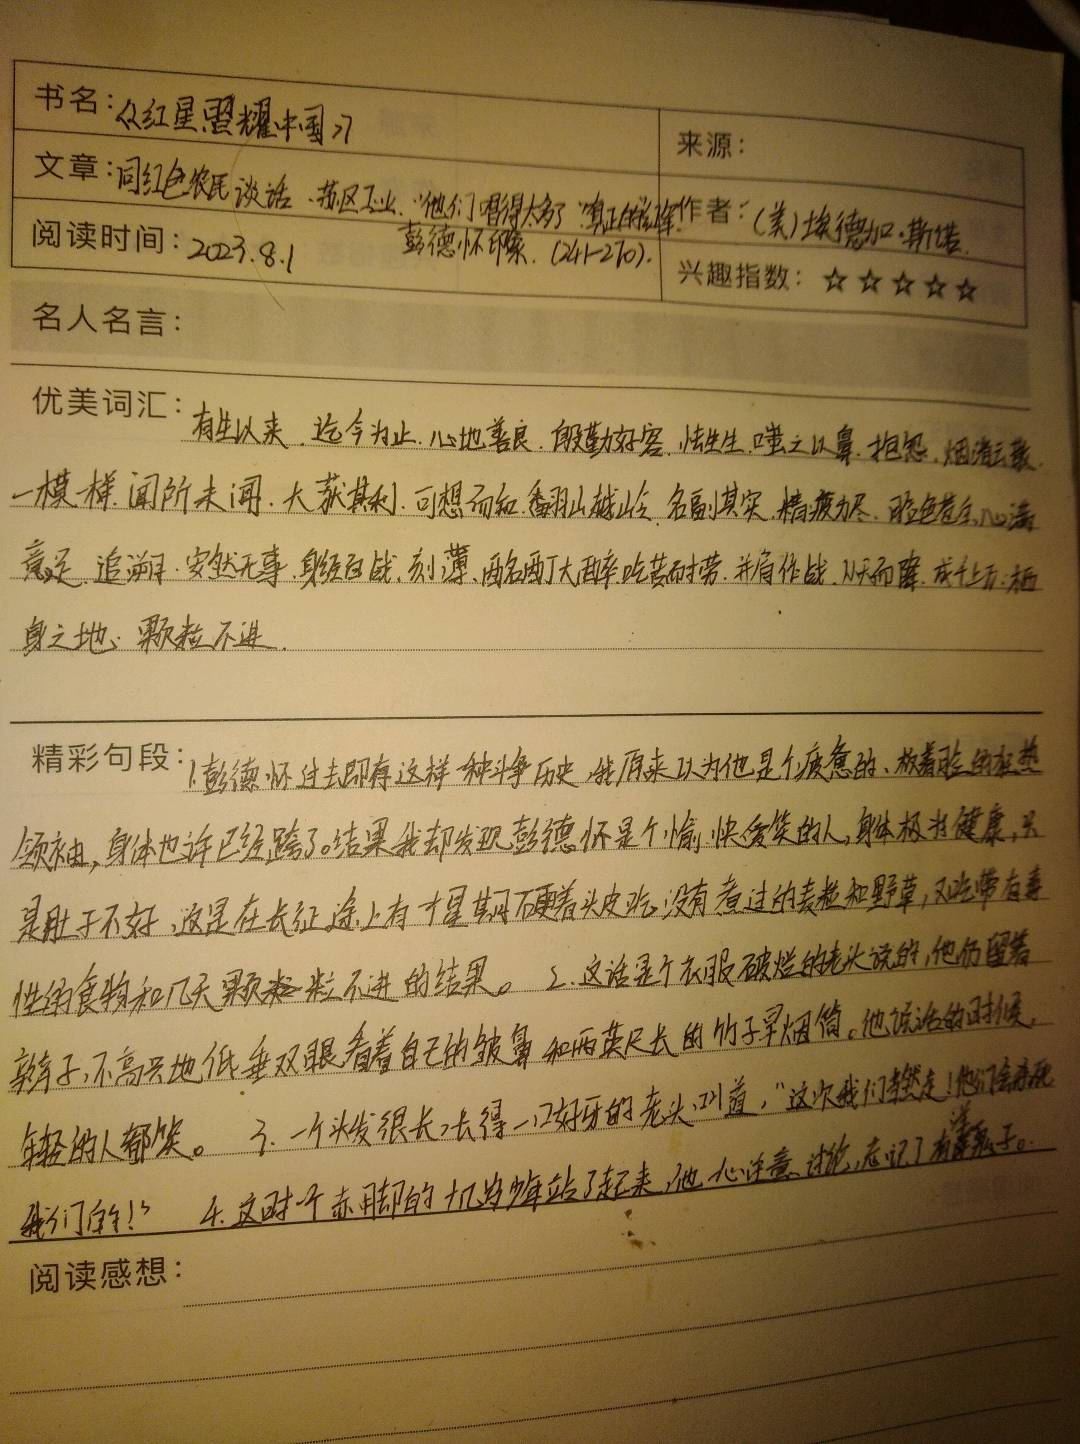 书名:《红星照耀中国》
来源:
文章:同红色农民谈话、苏区工业、“他们唱得太多了”
作者:(美)埃德加·斯诺
阅读时间:2023.8.1 彭德怀印象.(241-270).
兴趣指数:☆☆☆☆☆
名人名言:
优美词汇:有生以来、迄今为止、心地善良、殷勤好客、怯生生、嗤之以鼻、抱怨、烟消云散、
一模一样、闻所未闻、大获其利、可想而知、翻山越岭、名副其实、精疲力尽、脸色苍白、心满
意足、追溯、安然无事、身经百战、刻薄、吃苦耐劳、并肩作战、从天而降、成千上万、栖
身之地、颗粒不进.
精彩句段:1.彭德怀过去即有这样一种斗争历史,我原来以为他是个疲惫的、板着脸的狂热
领袖,身体也许已经垮了。结果我却发现彭德怀是个愉快爱笑的人,身体极为健康,只
是肚子不好,这是在长征途上有一个星期硬着头皮吃没有煮过的麦粒和野草,又吃带有毒
性的食物和几天颗粒不进的结果。 2.这话是个衣服破烂的老头说的,他仍留着
辫子,不高兴地低垂双眼看着自己的皱鼻和两英尺长的竹子旱烟筒。他说话的时候,
年轻的人都笑。 3.一个头发很长,长得一口好牙的老头叫道,“这次我们当然走!他们会杀死
我们的!” 4.这时一个赤脚的十几岁少年站了起来,他一心注意讨论,忘记了有洋鬼子。
阅读感想: